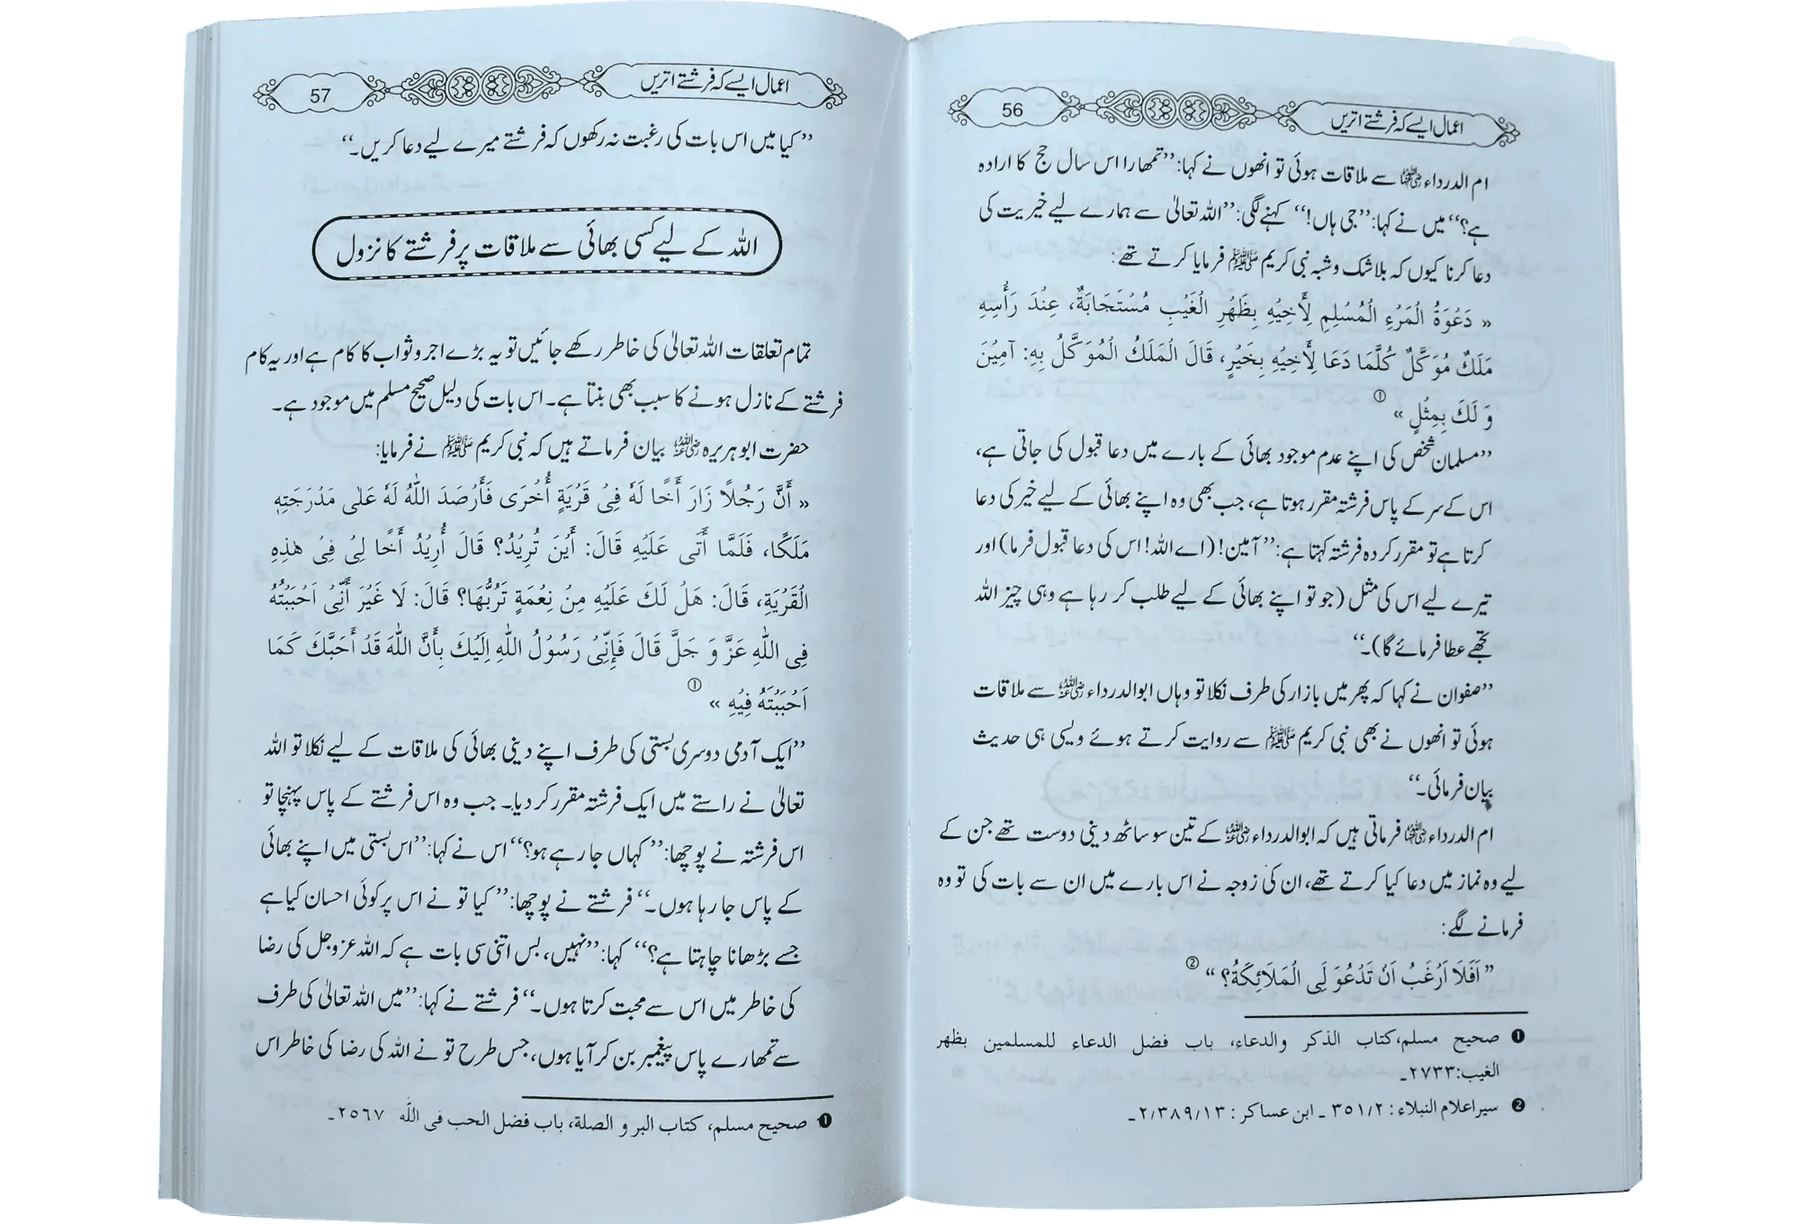 اعمال ایسے کہ فرشتے اتریں
56
ام الدرداء رضی اللہ عنہا سے ملاقات ہوئی تو انھوں نے کہا: ’’تمھارا اس سال حج کا ارادہ
ہے؟‘‘ میں نے کہا: ’’جی ہاں!‘‘ کہنے لگی: ’’اللہ تعالیٰ سے ہمارے لیے خیریت کی
دعا کرنا کیوں کہ بلاشک و شبہ نبی کریم ﷺ فرمایا کرتے تھے:
« دَعْوَةُ الْمَرْءِ الْمُسْلِمِ لِأَخِيْهِ بِظَهْرِ الْغَيْبِ مُسْتَجَابَةٌ، عِنْدَ رَأْسِهِ
مَلَكٌ مُوَكَّلٌ كُلَّمَا دَعَا لِأَخِيْهِ بِخَيْرٍ، قَالَ الْمَلَكُ الْمُوَكَّلُ بِهِ: آمِيْنَ
وَ لَكَ بِمِثْلٍ » ①
’’مسلمان شخص کی اپنے عدم موجود بھائی کے بارے میں دعا قبول کی جاتی ہے،
اس کے سر کے پاس فرشتہ مقرر ہوتا ہے، جب بھی وہ اپنے بھائی کے لیے خیر کی دعا
کرتا ہے تو مقرر کردہ فرشتہ کہتا ہے: ’’آمین! (اے اللہ! اس کی دعا قبول فرما) اور
تیرے لیے اس کی مثل (جو تو اپنے بھائی کے لیے طلب کر رہا ہے وہی چیز اللہ
تجھے عطا فرمائے گا)۔‘‘
’’صفوان نے کہا کہ پھر میں بازار کی طرف نکلا تو وہاں ابوالدرداء رضی اللہ عنہ سے ملاقات
ہوئی تو انھوں نے بھی نبی کریم ﷺ سے روایت کرتے ہوئے ویسی ہی حدیث
بیان فرمائی۔‘‘
ام الدرداء رضی اللہ عنہا فرماتی ہیں کہ ابوالدرداء رضی اللہ عنہ کے تین سو ساٹھ دینی دوست تھے جن کے
لیے وہ نماز میں دعا کیا کرتے تھے، ان کی زوجہ نے اس بارے میں ان سے بات کی تو وہ
فرمانے لگے:
” اَفَلَا اَرْغَبُ اَنْ تَدْعُوَ لَى الْمَلَائِكَةُ؟ “ ②
❶ صحيح مسلم، كتاب الذكر والدعاء، باب فضل الدعاء للمسلمين بظهر
الغيب: ٢٧٣٣۔
❷ سيراعلام النبلاء : ٣٥١/٢ ۔ ابن عساكر : ٢/٣٨٩/١٣۔
اعمال ایسے کہ فرشتے اتریں
57
’’کیا میں اس بات کی رغبت نہ رکھوں کہ فرشتے میرے لیے دعا کریں۔‘‘
اللہ کے لیے کسی بھائی سے ملاقات پر فرشتے کا نزول
تمام تعلقات اللہ تعالیٰ کی خاطر رکھے جائیں تو یہ بڑے اجر و ثواب کا کام ہے اور یہ کام
فرشتے کے نازل ہونے کا سبب بھی بنتا ہے۔ اس بات کی دلیل صحیح مسلم میں موجود ہے۔
حضرت ابوہریرہ رضی اللہ عنہ بیان فرماتے ہیں کہ نبی کریم ﷺ نے فرمایا:
« أَنَّ رَجُلًا زَارَ أَخًا لَهُ فِىْ قَرْيَةٍ أُخْرَى فَأَرْصَدَ اللّٰهُ لَهُ عَلٰى مَدْرَجَتِهٖ
مَلَكًا، فَلَمَّا أَتَى عَلَيْهِ قَالَ: أَيْنَ تُرِيْدُ؟ قَالَ أُرِيْدُ أَخًا لِىْ فِىْ هٰذِهِ
الْقَرْيَةِ، قَالَ: هَلْ لَكَ عَلَيْهِ مِنْ نِعْمَةٍ تَرُبُّهَا؟ قَالَ: لَا غَيْرَ أَنِّىْ اَحْبَبْتُهُ
فِى اللّٰهِ عَزَّ وَ جَلَّ قَالَ فَإِنِّىْ رَسُوْلُ اللّٰهِ اِلَيْكَ بِأَنَّ اللّٰهَ قَدْ أَحَبَّكَ كَمَا
اَحْبَبْتَهُ فِيْهِ » ①
’’ایک آدمی دوسری بستی کی طرف اپنے دینی بھائی کی ملاقات کے لیے نکلا تو اللہ
تعالیٰ نے راستے میں ایک فرشتہ مقرر کر دیا۔ جب وہ اس فرشتے کے پاس پہنچا تو
اس فرشتہ نے پوچھا: ’’کہاں جا رہے ہو؟‘‘ اس نے کہا: ’’اس بستی میں اپنے بھائی
کے پاس جا رہا ہوں۔‘‘ فرشتے نے پوچھا: ’’کیا تو نے اس پر کوئی احسان کیا ہے
جسے بڑھانا چاہتا ہے؟‘‘ کہا: ’’نہیں، بس اتنی سی بات ہے کہ اللہ عزوجل کی رضا
کی خاطر میں اس سے محبت کرتا ہوں۔‘‘ فرشتے نے کہا: ’’میں اللہ تعالیٰ کی طرف
سے تمھارے پاس پیغمبر بن کر آیا ہوں، جس طرح تو نے اللہ کی رضا کی خاطر اس
❶ صحيح مسلم، كتاب البر و الصلة، باب فضل الحب فى اللّٰه ٢٥٦٧۔